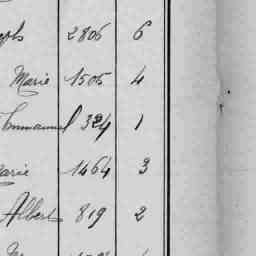 2806 6
Marie 1505 4
Emmanuel 324 1
Marie 1464 3
Albert 819 2